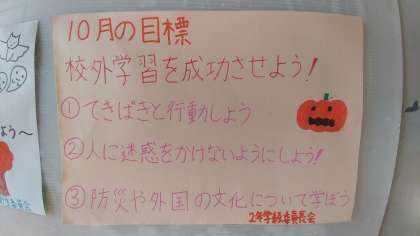 10月の目標
校外学習を成功させよう!
①てきぱきと行動しよう
②人に迷惑をかけないようにしよう!
③防災や外国の文化について学ぼう
2年学級委員長会
よう〜
委員会